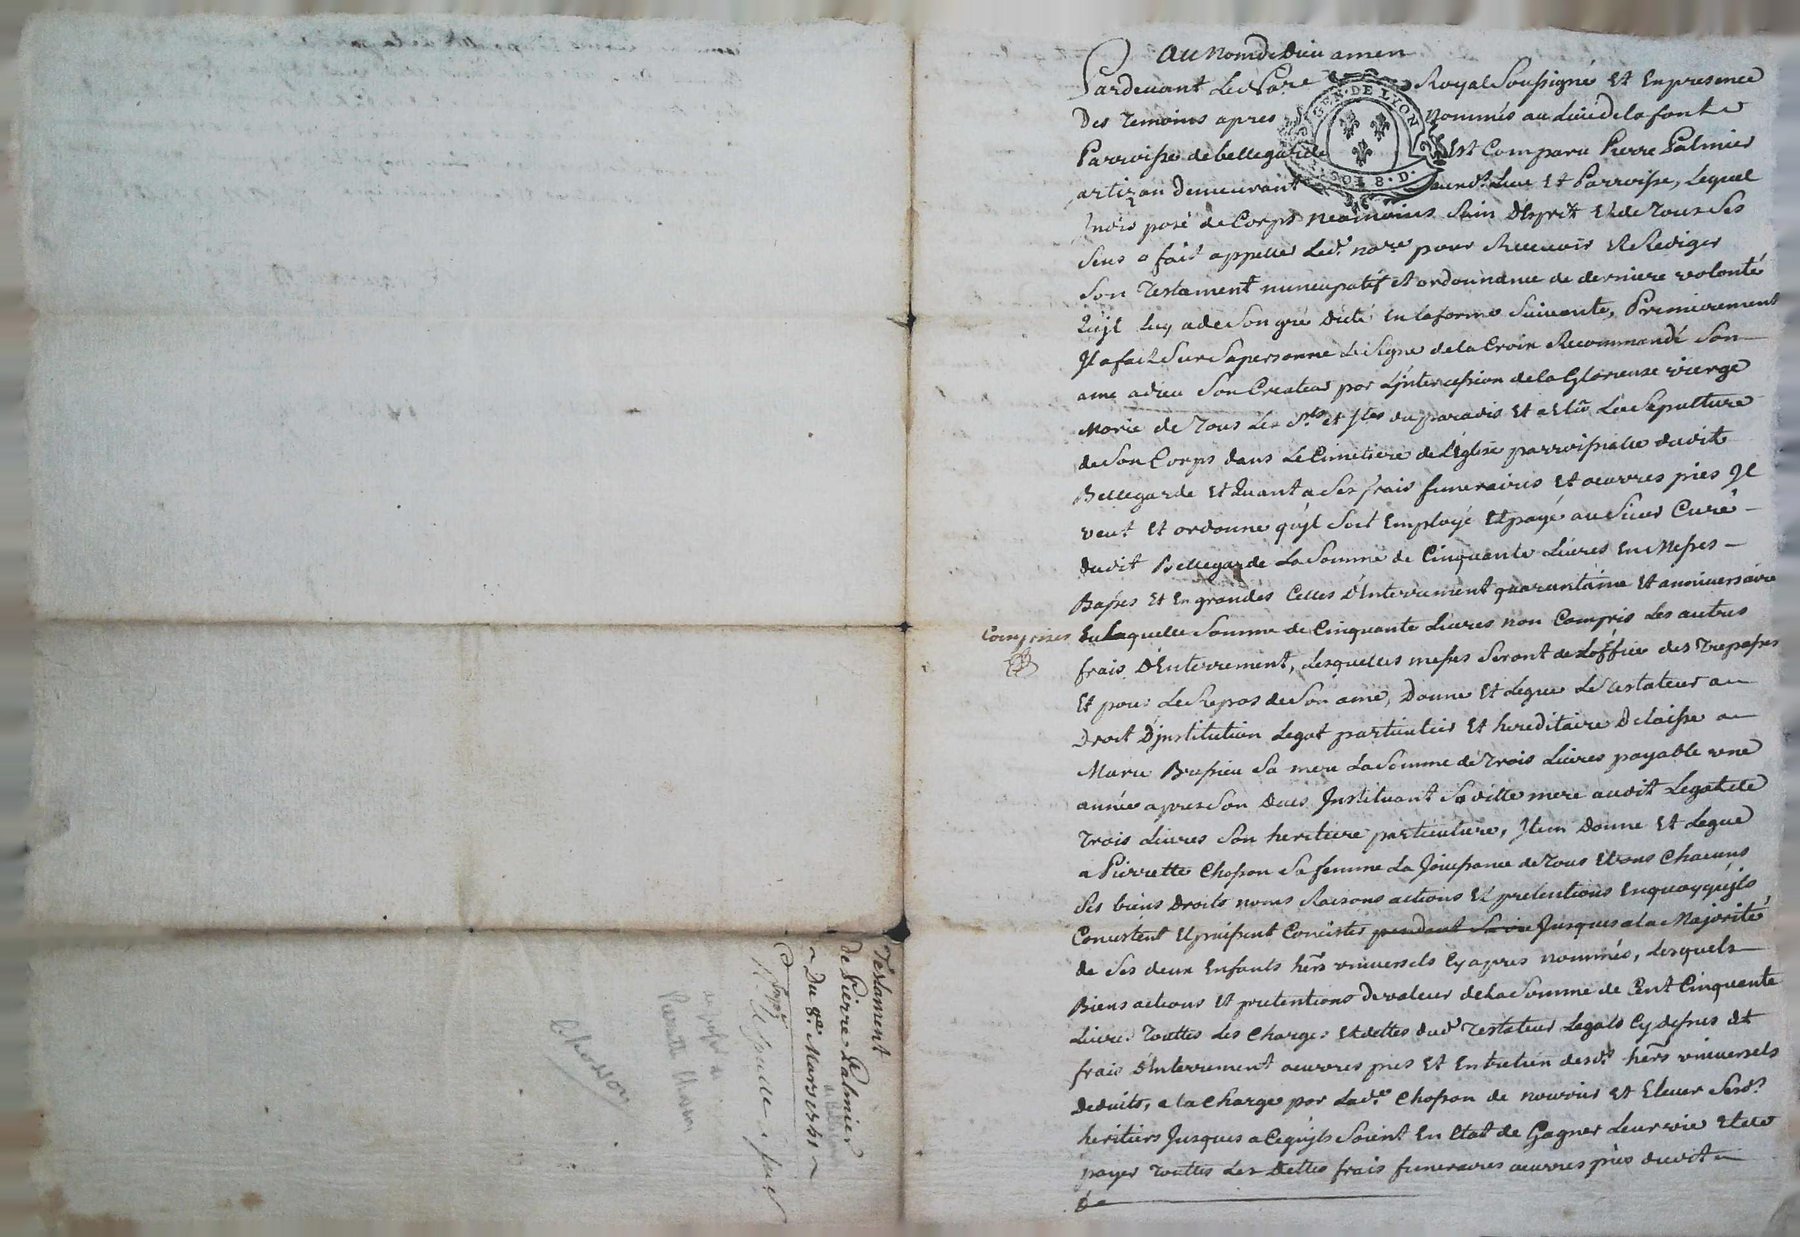 au nom de Dieu amen
Pardevant Le No.re Royal Soussigné Et En presence
Des Temoins apres nommés au Lieu de la font
Parroisse de bellegarde Est Comparu Pierre Palmier
artizan demeurant aud.t Lieu Et Parroisse, Lequel
Jndisposé de Corps neamoins Sain d'Esprit Et de Tous Ses
Sens a fait appeller Led.t no.re pour Recevoir Et Rediger
Son Testament nuncupatif et ordonnance de derniere volonté
qu'jl Luy a de Son gré dicté En la forme Suivante, Premierement
Jl a fait Sur Sa personne Le Signe de la Croix Recommandé Son
ame a dieu Son Createur par L'jntercession de la Glorieuse vierge
Marie de Tous Les S.ts et S.tes du paradis Et a Elû La Sepulture
de Son Corps dans Le Cimetiere de L'Eglise parroissialle dudit
Bellegarde Et Quant a Ses frais funeraires Et oeuvres pies Jl
veut Et ordonne qu'jl Soit Employé Et payé au Sieur Curé
dudit Bellegarde La Somme de Cinquante Livres En Messes
Basses Et En grandes Celles d'Enterrement quarantaine Et anniversaire
Comprises En Laquelle Somme de Cinquante Livres non Compris Les autres
frais d'Enterrement, Lesquelles messes Seront de L'office des Trepassés
Et pour Le Repos de Son ame, Donne Et Legue Le Testateur au
Droit D'jnstitution Legat particulier Et hereditaire Delaisse a
Marie Bressieu Sa mere La Somme de Trois Livres payable une
année apres Son deces Jnstituant Sa ditte mere audit Legat de
Trois Livres Son heritiere particuliere, Jtem Donne Et Legue
a Pierrette Chosson Sa femme La Jouissance de Tous Et Uns Chacuns
Ses biens Droits noms Raisons actions Et pretentions En quoy qu'jls
Consistent Et puissent Consister pendant Sa vie Jusques a la Majorité
de Ses deux Enfants hers universels Cy apres nommés, Lesquels
Biens actions Et pretentions De valeur de La Somme de Cent Cinquante
Livres Touttes Les Charges Et dettes dud.t Testateur Legats Cy dessus Et
frais d'Enterrement oeuvres pies Et Entretien desd.ts hers universels
deduits, a la Charge par Lad.te Chosson de nourrir Et Elever Sesd.ts
heritiers Jusques a Ce qu'jls Soient En Etat de Gagner Leur vie Et de
payer Touttes Les Dettes frais funeraires oeuvres pies dudit
De
Testament
De Pierre Palmier
Du 8.e Mars 1741
Pierrette Chosson
Chosson
GEN. DE LYON